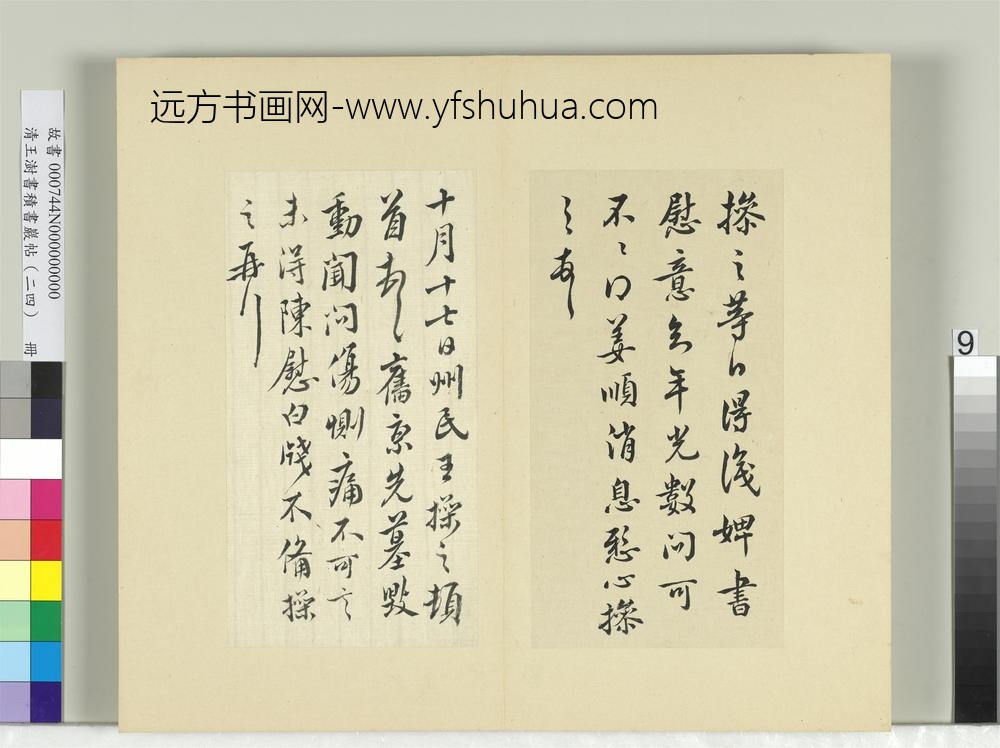 远方书画网-www.yfshuhua.com
操之等白得識婢書
慰意年光數問可
不〻姜順消息懸心操
之
十月十七日州民王操之頓
首〻舊京先墓毀
動聞問傷惻痛不可言
未得陳慰白牋不備操
之再拜
故書 000744N000000000
清王澍書積書巖帖（二四） 冊
9